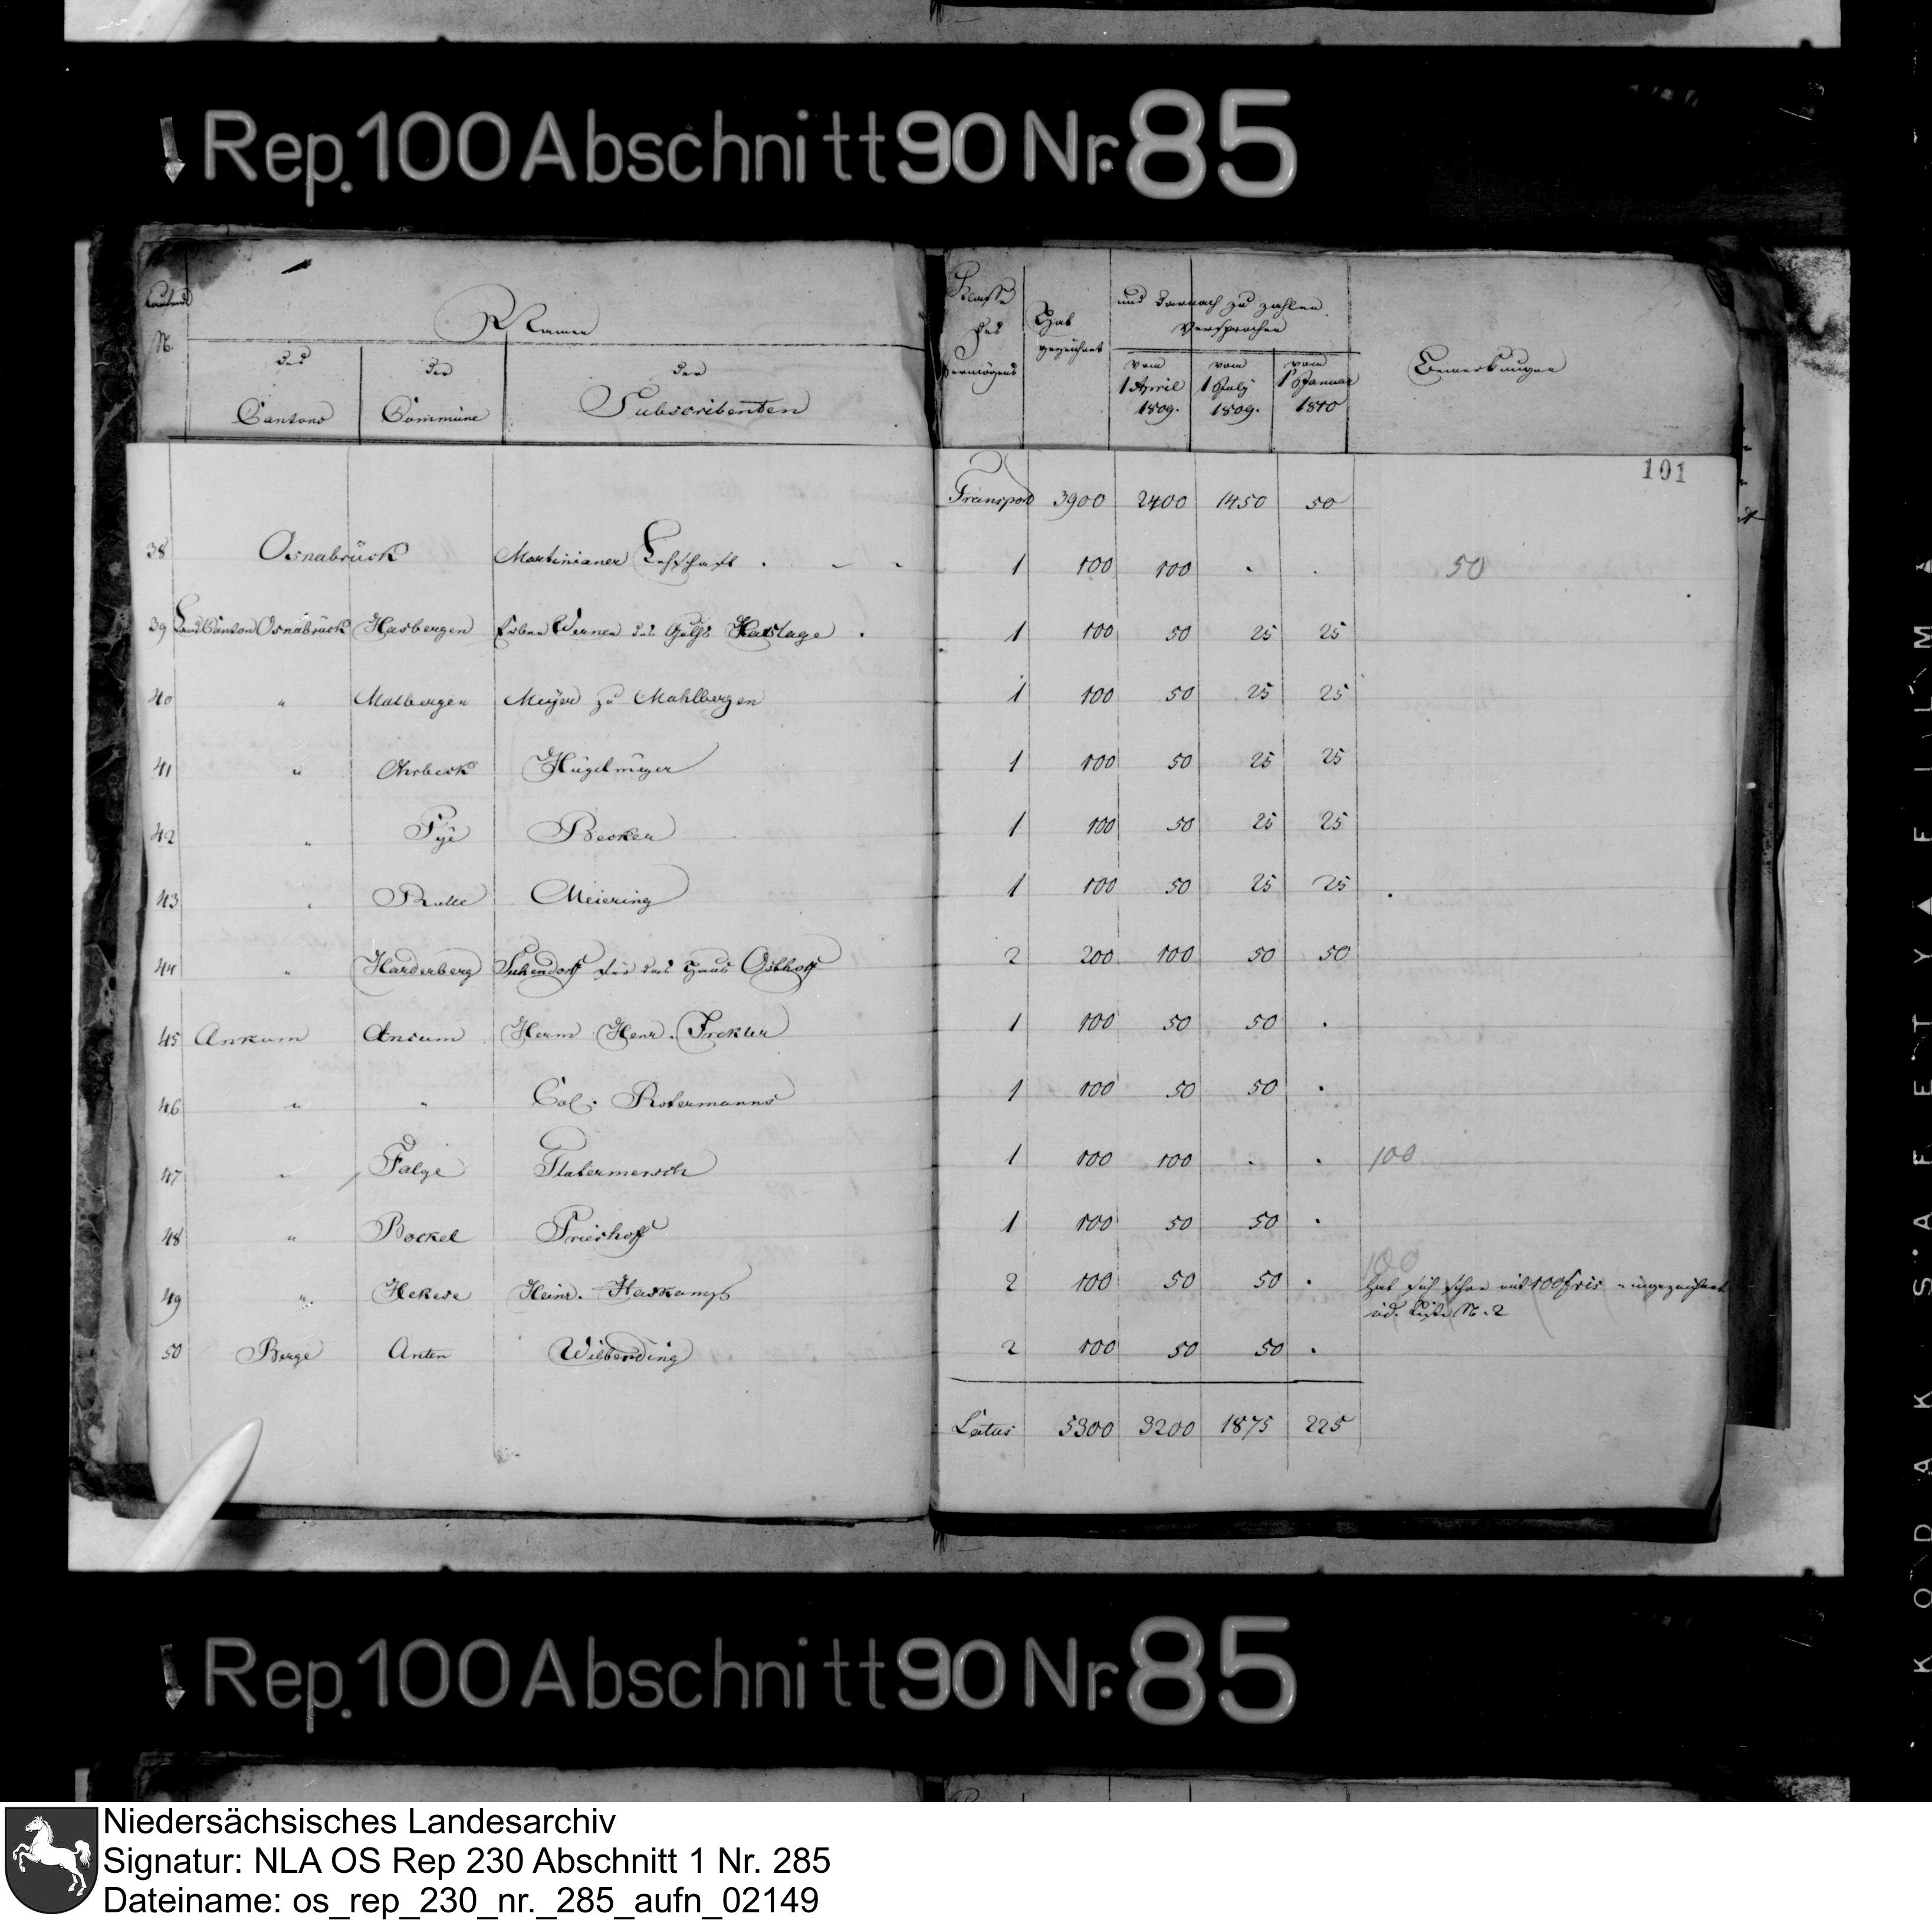 Rep. 100 Abschnitt 90 Nr. 85
Laufende
N.
Namen
des
Cantons
der
Commüne
der
Subscribenten
Klasse
des
Vermögens
Hat
gezeichnet
und darnach zu zahlen
versprochen
vom
1 April
1809.
vom
1 July
1809.
vom
1 Januar
1810
Bemerkungen
101
Transport 3900 2400 1450 50
38 Osnabrück Martinianer 1 100 100 . . 50
39 LandCanton Osnabrück Hasbergen Werner des Haslage . 1 100 50 25 25
40 " Malbergen Meyer zu Mahlbergen 1 100 50 25 25
41 " Ohrbeck Hügelmeyer 1 100 50 25 25
42 " Pye Becker 1 100 50 25 25
43 " Rulle Meiering 1 100 50 25 25
44 " Harderberg für das Haus Osthoff 2 200 100 50 50
45 Ankum Ancum Herm Henr. 1 100 50 50 .
46 " " Col. Rotermanns 1 100 50 50 .
47 " Talge 1 100 100 . . 100
48 " Bockel Frierhoff 1 100 50 50 .
100
49 " Hekese Heinr. Haskamp 2 100 50 50 . hat sich schon mit 100 frcs eingezeichnet
vid. Liste N. 2
50 Berge Anten Wilberding 2 100 50 50 .
Latus 5300 3200 1875 225
Rep. 100 Abschnitt 90 Nr. 85
KODAK SAFETY FILM
Niedersächsisches Landesarchiv
Signatur: NLA OS Rep 230 Abschnitt 1 Nr. 285
Dateiname: os_rep_230_nr._285_aufn_02149